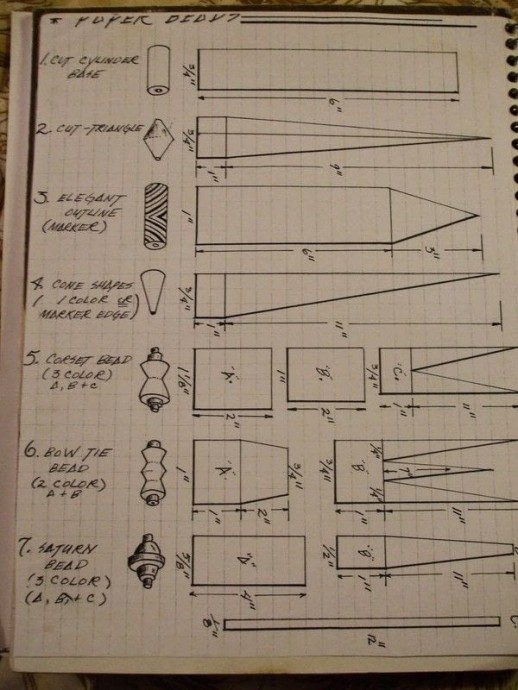 * PAPER BEADS
1. CUT CYLINDER
BASE
3/4"
6"
2. CUT-TRIANGLE
3/4"
1"
9"
3. ELEGANT
OUTLINE
(MARKER)
1"
6"
3"
4. CONE SHAPES
(1 COLOR OR
MARKER EDGE)
3/4"
1"
11"
5. CORSET BEAD
(3 COLOR)
A, B + C
1 1/16"
"A"
2"
1"
"B"
2"
3/4"
"C"
1"
11"
6. BOW TIE
BEAD
(2 COLOR)
A + B
1"
"A"
1"
2"
3/4"
3/4"
"B"
1/4"
1/4"
7"
1"
11"
7. SATURN
BEAD
(3 COLOR)
(A, B, + C)
5/8"
"A"
4"
1/2"
"B"
1"
11"
1/8"
12"